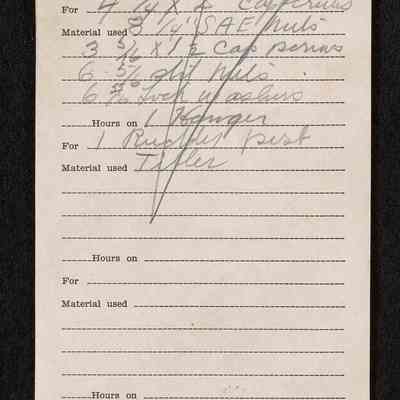 For 4 1/4 X 2 Capscrews
Material used 3 1/4 SAE nuts
3 5/16 X 1 1/2 Cap screws
6 5/16 slit nuts
6 5/16 Lock washers
Hours on 1 Hanger
For 1 Rudder post
Material used
Hours on
For
Material used
Hours on